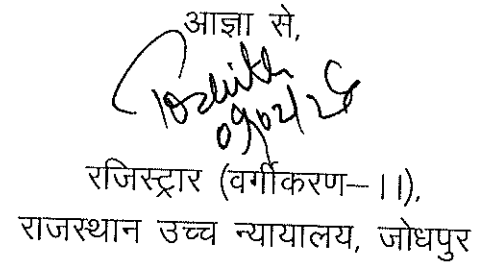 आज्ञा से,
09/02/26
रजिस्ट्रार (वर्गीकरण–।।),
राजस्थान उच्च न्यायालय, जोधपुर